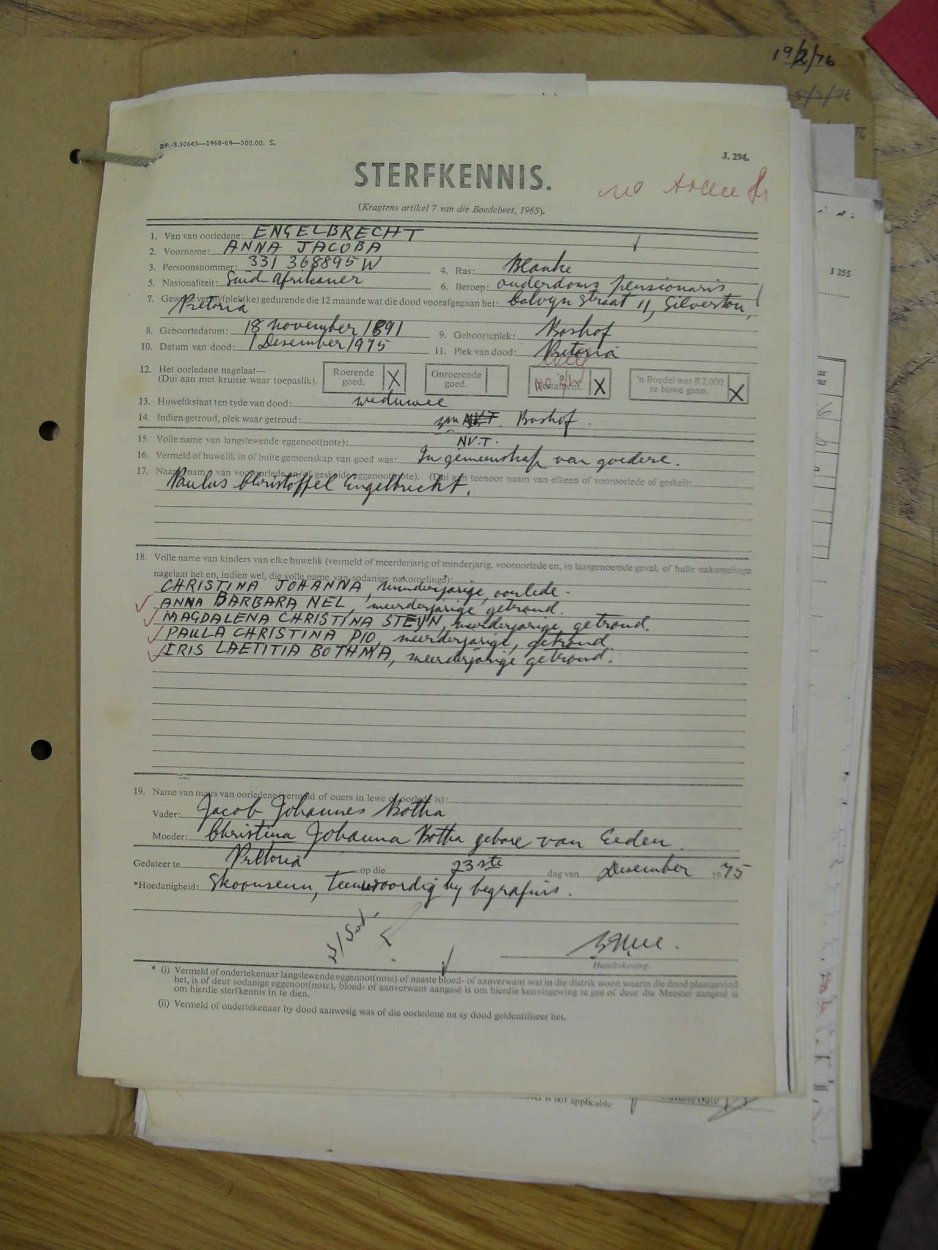 19/2/76
5/3/76
DP.-S.30643—1968-69—300,00. S.
J. 294.
STERFKENNIS.
(Kragtens artikel 7 van die Boedelwet, 1965).
J 255
1. Van van oorledene: ENGELBRECHT
2. Voorname: ANNA JACOBA
3. Persoonsnommer: 331 368895 W 4. Ras: Blanke
5. Nasionaliteit: Suid Afrikaner 6. Beroep: ouderdoms pensionaris
7. Gewone verblyfplek(ke) gedurende die 12 maande wat die dood voorafgegaan het: Calvyn straat 11, Silverton,
Pretoria
8. Geboortedatum: 18 november 1891 9. Geboorteplek: Boshof
10. Datum van dood: 1 Desember 1975 11. Plek van dood: Pretoria
12. Het oorledene nagelaat— Roerende Onroerende 'n Boedel wat R2,000
(Dui aan met kruisie waar toepaslik). goed. X goed. Testament. X te bowe gaan. X
13. Huwelikstaat ten tyde van dood: weduwee
14. Indien getroud, plek waar getroud: N.V.T. Boshof.
15. Volle name van langslewende eggenoot(note): NV.T.
16. Vermeld of huwelik in of buite gemeenskap van goed was: In gemeenskap van goedere.
17. Naam/name van vooroorledene en/of geskeide eggenoot(note). (Dui aan teenoor naam van elkeen of vooroorlede of geskei):
Paulus Christoffel Engelbrecht.
18. Volle name van kinders van elke huwelik (vermeld of meerderjarig of minderjarig, vooroorlede en, in laasgenoemde geval, of hulle nakomelinge
nagelaat het en, indien wel, die volle name van sodanige nakomelinge):
CHRISTINA JOHANNA, minderjarige, oorlede.
ANNA BARBARA NEL, meerderjarige getroud.
MAGDALENA CHRISTINA STEYN, meerderjarige, getroud.
PAULA CHRISTINA PIO, meerderjarige, getroud.
IRIS LAETITIA BOTHMA, meerderjarige getroud.
19. Name van ouers van oorledene (vermeld of ouers in lewe of oorlede is):
Vader: Jacob Johannes Botha
Moeder: Christina Johanna Botha gebore van Eeden.
Gedateer te Pretoria op die 23ste dag van Desember 1975
*Hoedanigheid: Skoonseun, teenwoordig by begrafnis.
Handtekening.
* (i) Vermeld of ondertekenaar langslewende eggenoot(note) of naaste bloed- of aanverwant wat in die distrik woon waarin die dood plaasgevind
het, is of deur sodanige eggenoot(note), bloed- of aanverwant aangesê is om hierdie kennisgewing te gee of deur die Meester aangesê is
om hierdie sterfkennis in te dien.
(ii) Vermeld of ondertekenaar by dood aanwesig was of die oorledene na sy dood geïdentifiseer het.
is not applicable